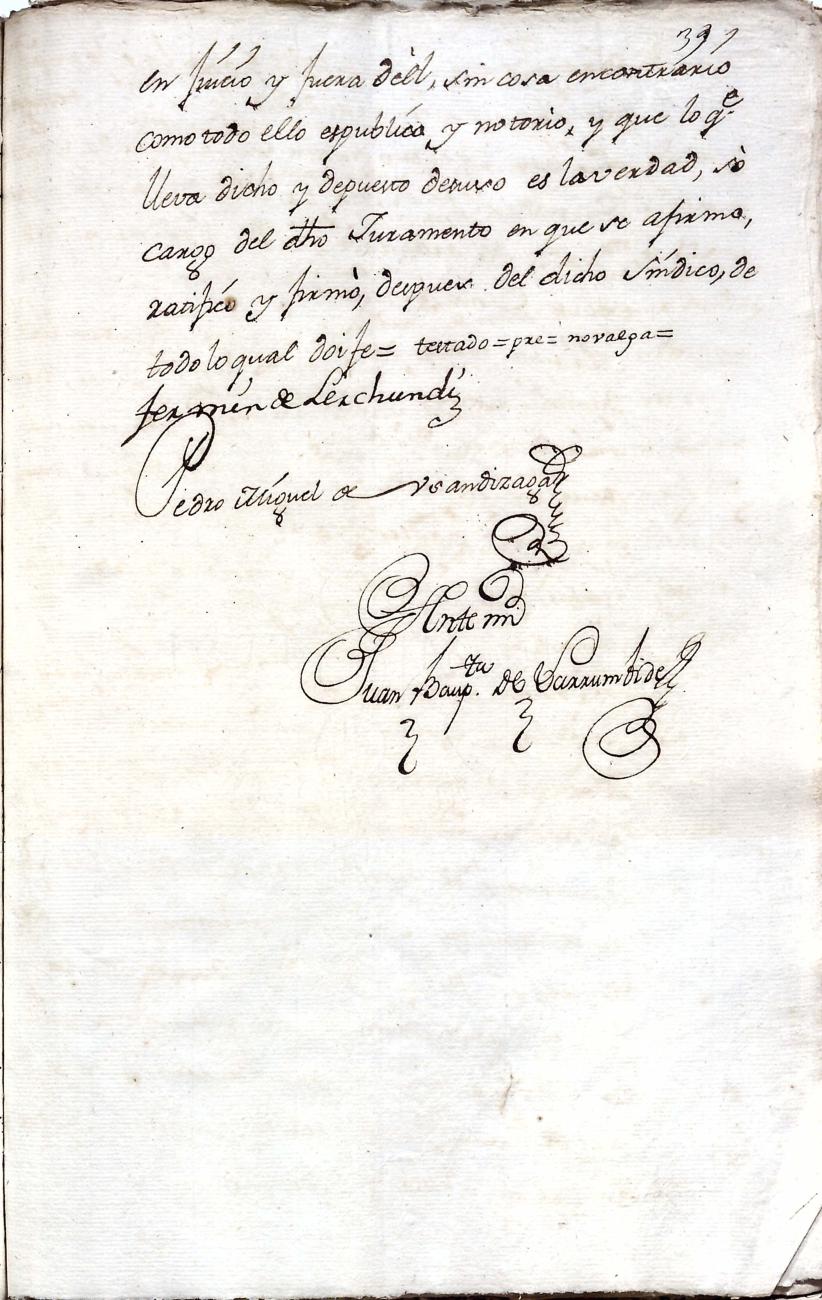 39
en Juicio y fuera dèl, sin cosa encontrario
como todo ello espublico, y notorio, y que lo q.e
lleva dicho y depuesto desuso es laverdad, sò
cargo del dho Juramento en que se afirmo,
ratificó y firmò, despues del dicho Síndico, de
todo loqual doi fe= testado=pre= novalga=
Fermín de Lerchundi
Pedro Miguel de Usandizaga
Ante mi
Juan Baup.ta de Larrumbide